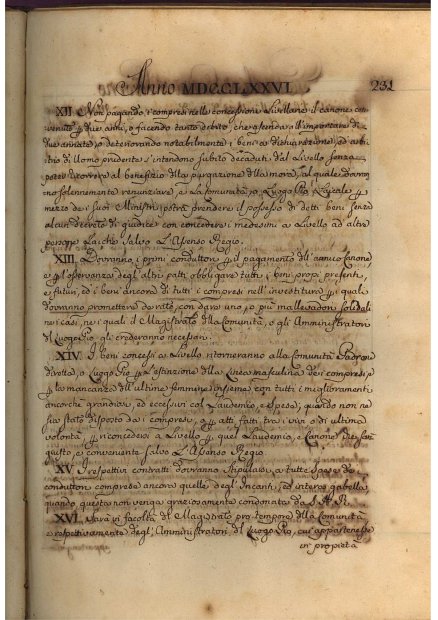 Anno MDCCLXXVI. 231
XII. Non pagando i compresi nella concessione Livellare il canone con
venuto p due anni, o facendo tanto debito, che ascendesse all'importare di
due annate, o deteriorando notabilmente i beni a dichiarazione, ed arbi
trio di Uomo prudente s'intendono subito decaduti dal Livello senza
poter ricorrere al benefizio della purgazione della mora, al quale dovran
no solennemente renunziare, e la Comunità, o Luogo Pio Laicale p
mezzo de' suoi Ministri potrà prendere il possesso di detti beni senza
alcun decreto di giudice con concedere i medesimi a Livello ad altre
persone Laiche salvo L'Assenso Regio.
XIII. Dovranno i primi conduttori p il pagamento dell'annuo Canone
e p l'osservanza degl'altri patti obbligare tutti i beni propri presenti,
e futuri, ed i beni ancora di tutti i compresi nell'investitura p i quali
dovranno promettere de rato, con dare uno, o più mallevadori solidali
nei casi, nei quali il Magistrato della Comunità, o gli Amministratori
del Luogo Pio, gli crederanno necessari.
XIV. I beni concessi a Livello ritorneranno alla Comunità Padrona
diretta, o Luogo Pio p L'estinzione della Linea masculina dei compresi e p
la mancanza dell'ultime femmine insieme con tutti i miglioramenti
ancorchè grandiosi, ed eccessivi col Laudemio, e spese, quando non ne
sia stato disposto da' compresi, o p atti fatti tra i vivi o di ultima
volontà p riconcedersi a Livello p quel Laudemio, e Canone che sarà
giusto, e conveniente salvo L'Assenso Regio.
XV. I respettivi contratti dovranno stipularsi a tutte spese de'
conduttori comprese ancora quelle degl'Incanti, ed intera gabella
quando questa non venga graziosamente condonata da S. A. R.
XVI. Sarà in facoltà del Magistrato pro tempore della Comunità
e respettivamente degl'Amministratori del Luogo Pio, cui appartenesse
in proprietà